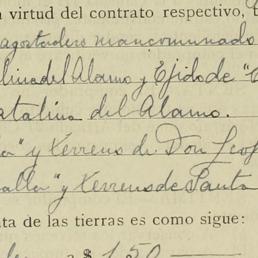 n virtud del contrato respectivo,
agostadero mancomunado
lina del Alamo y Ejido de "C
atalina del Alamo.
a" y terrenos de Don Leo
alla" y terrenos de Santa
ta de las tierras es como sigue:
a $ 1.50